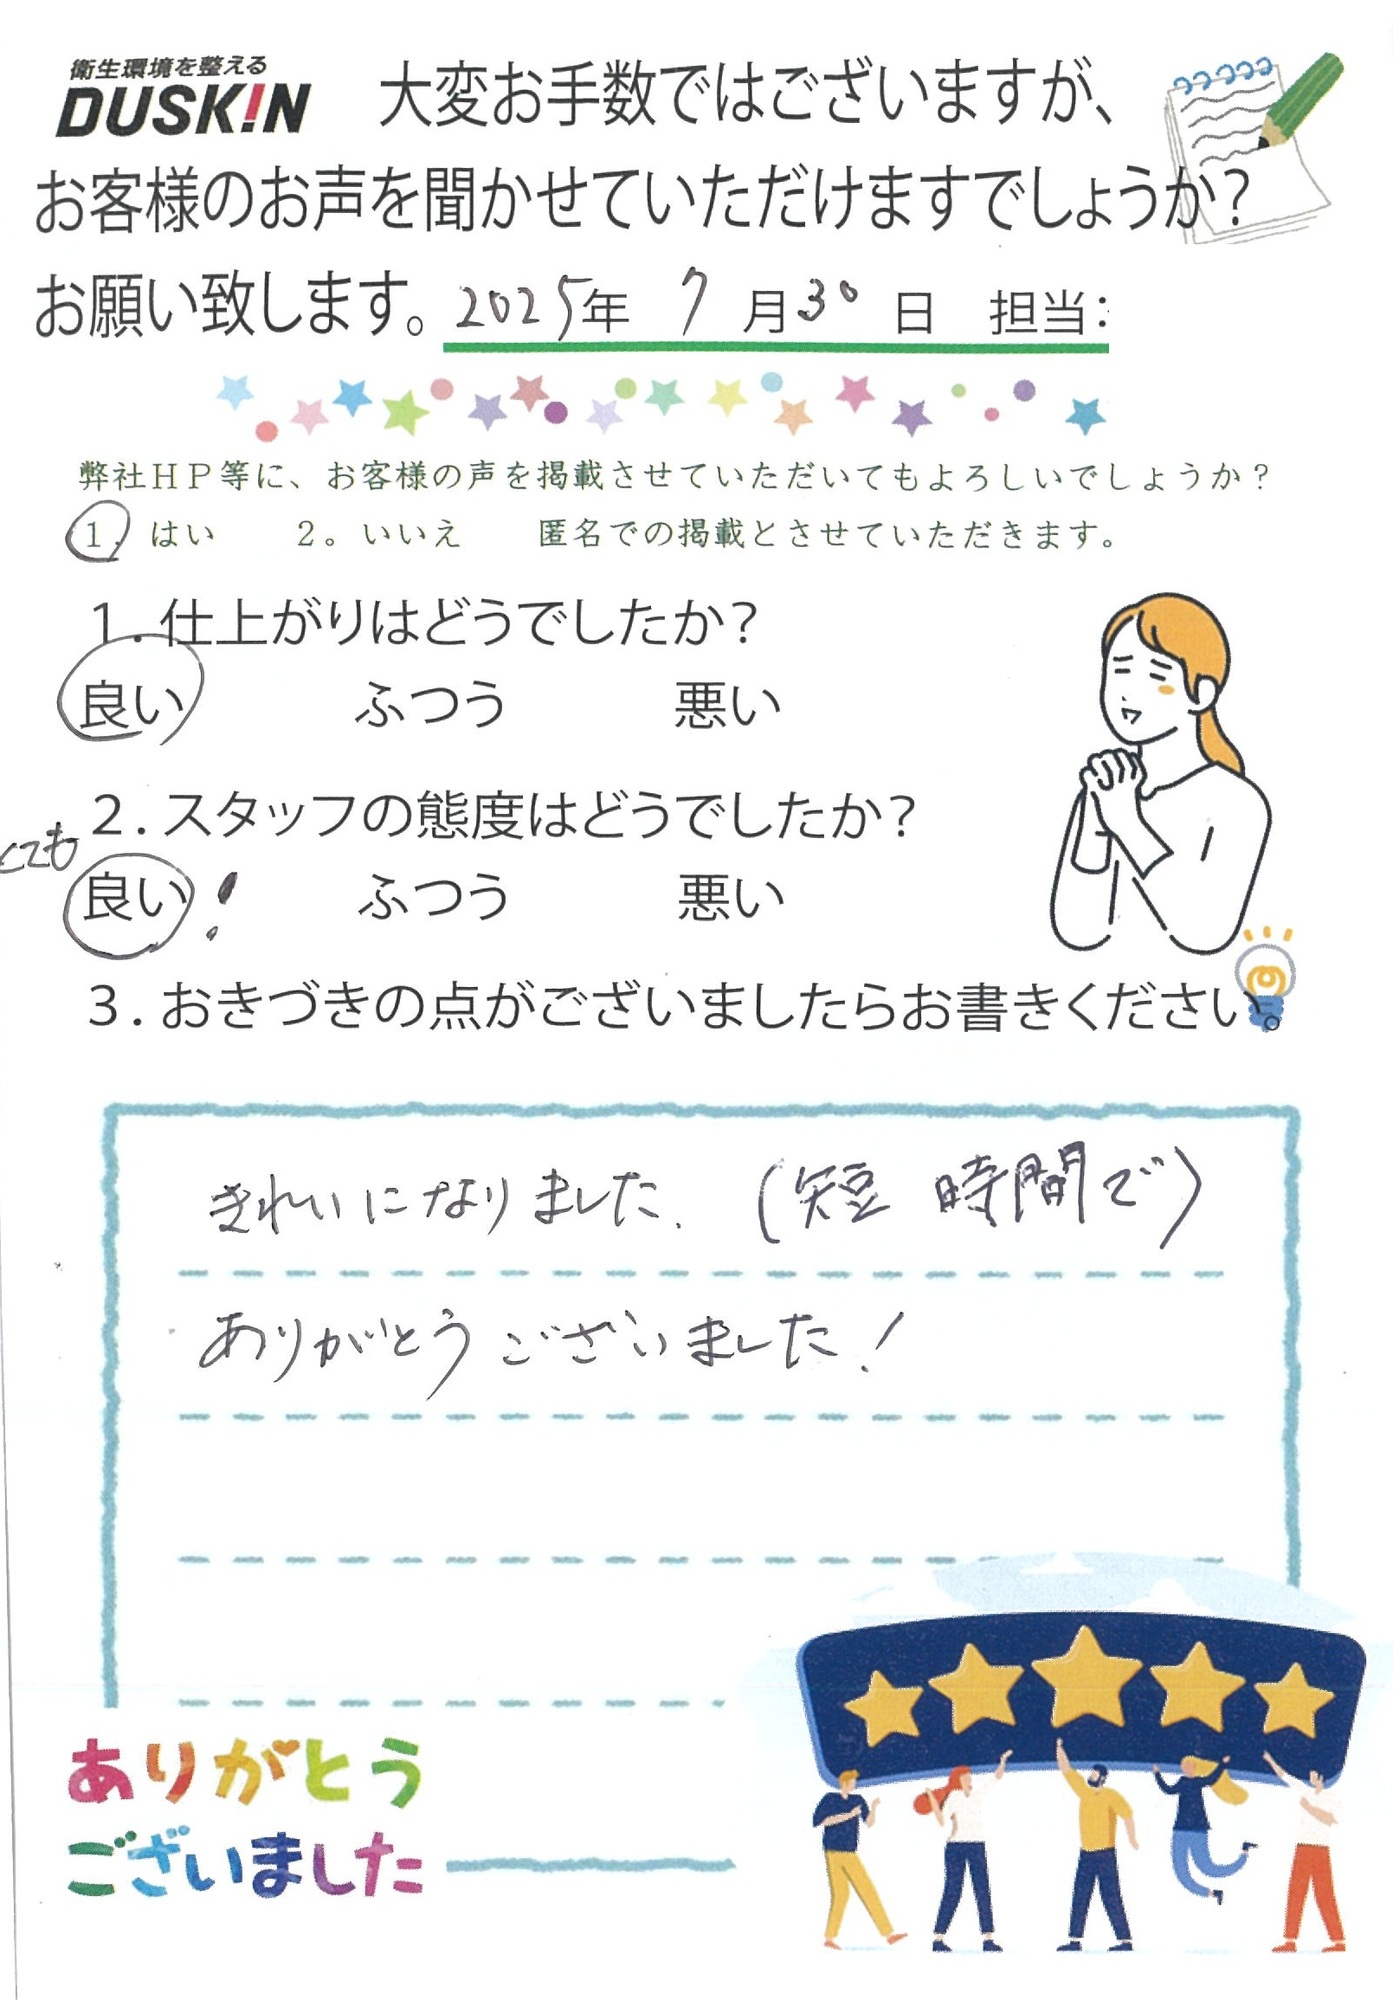 衛生環境を整える
DUSKIN 大変お手数ではございますが、
お客様のお声を聞かせていただけますでしょうか?
お願い致します。2025年 7月30日 担当:
弊社HP等に、お客様の声を掲載させていただいてもよろしいでしょうか?
1. はい 2。いいえ 匿名での掲載とさせていただきます。
1.仕上がりはどうでしたか?
良い ふつう 悪い
2.スタッフの態度はどうでしたか?
とても
良い! ふつう 悪い
3.おきづきの点がございましたらお書きください。
きれいになりました.(短時間で)
ありがとうございました!
ありがとう
ございました